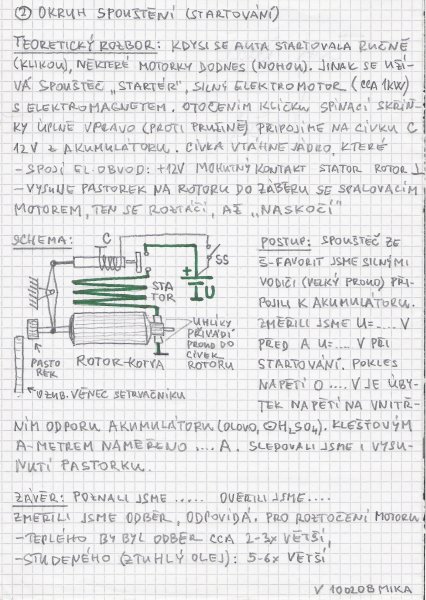 ② OKRUH SPOUŠTĚNÍ (STARTOVÁNÍ)
TEORETICKÝ ROZBOR: KDYSI SE AUTA STARTOVALA RUČNĚ
(KLIKOU), NĚKTERÉ MOTORKY DODNES (NOHOU). JINAK SE UŽÍ-
VÁ SPOUŠTĚČ "STARTÉR", SILNÝ ELEKTROMOTOR (CCA 1KW)
S ELEKTROMAGNETEM. OTOČENÍM KLÍČKU SPÍNACÍ SKŘÍŇ-
KY ÚPLNĚ VPRAVO (PROTI PRUŽINĚ) PŘIPOJÍME NA CÍVKU C
12V Z AKUMULÁTORU. CÍVKA VTÁHNE JÁDRO, KTERÉ
-SPOJÍ EL. OBVOD: +12V MOHUTNÝ KONTAKT STATOR ROTOR ⊥
-VYSUNE PASTOREK NA ROTORU DO ZÁBĚRU SE SPALOVACÍM
MOTOREM, TEN SE ROZTÁČÍ, AŽ "NASKOČÍ"
SCHEMA:
C
SS
+
IU
STA
TOR
PASTO
REK
ROTOR-KOTVA
UHLÍKY
PŘIVÁDÍ
PROUD DO
CÍVEK
ROTORU
OZUB. VĚNEC SETRVAČNÍKU
POSTUP: SPOUŠTĚČ ZE
Š-FAVORIT JSME SILNÝMI
VODIČI (VELKÝ PROUD) PŘI-
POJILI K AKUMULÁTORU.
ZMĚŘILI JSME U=.... V
PŘED A U=.... V PŘI
STARTOVÁNÍ. POKLES
NAPĚTÍ O .... V JE ÚBY-
TEK NAPĚTÍ NA VNITŘ-
NÍM ODPORU AKUMULÁTORU (OLOVO, H2SO4). KLEŠŤOVÝM
A-METREM NAMĚŘENO .... A. SLEDOVALI JSME I VYSU-
NUTÍ PASTORKU.
ZÁVĚR: POZNALI JSME ..... OVĚŘILI JSME....
ZMĚŘILI JSME ODBĚR, ODPOVÍDÁ. PRO ROZTOČENÍ MOTORU
-TEPLÉHO BY BYL ODBĚR CCA 2-3x VĚTŠÍ,
-STUDENÉHO (ZTUHLÝ OLEJ): 5-6x VĚTŠÍ
V 100208 MIKA